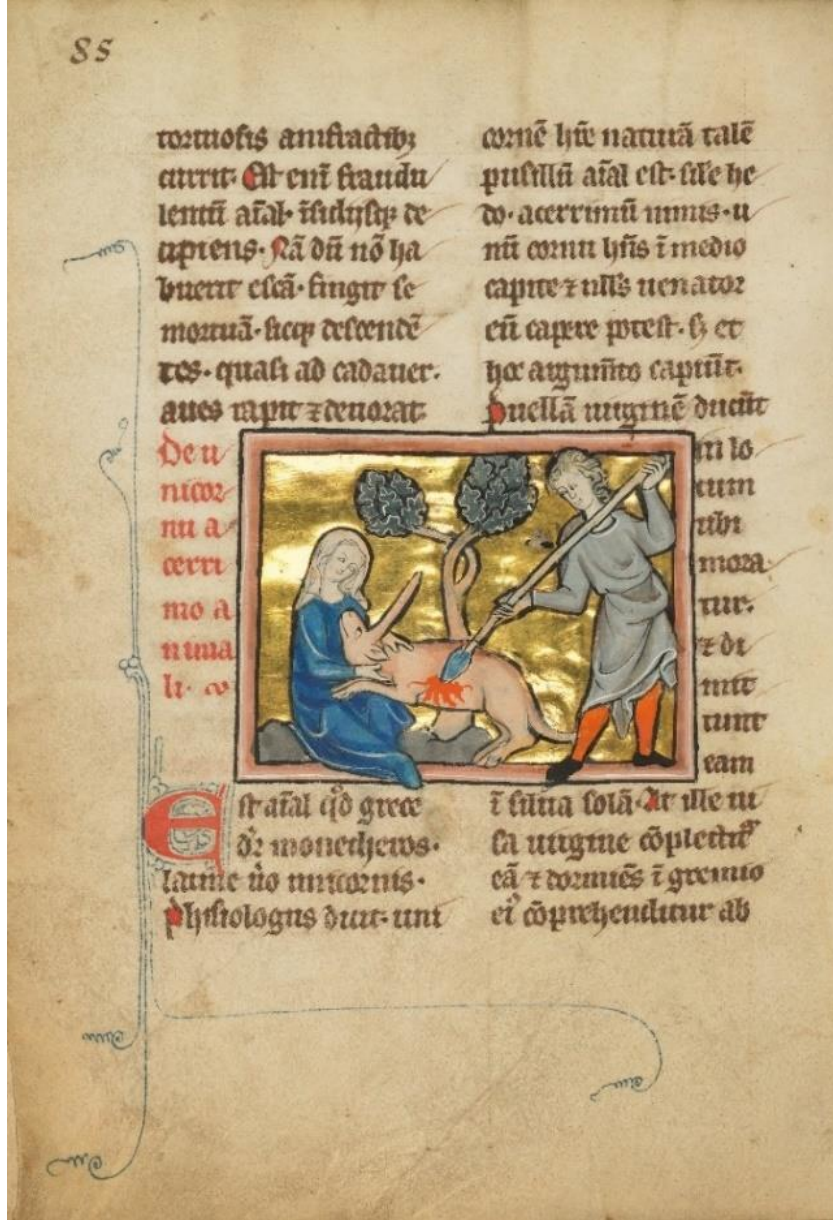 85
tortuosis anfractibꝫ
currit· Est eni͛ fraudu
lentū aīal· īsidijsqꝫ de
cipiens· Nā dū nō ha
buerit escā· fingit se
mortuā· sicqꝫ descendē
tes· quasi ad cadauer·
aues rapit ⁊ deuorat
De u
nicor
nu a
cerri
mo a
nima
li·
Est aīal qd̄ grece
dr̄ monecheros·
latine ūo unicornis·
Phisiologus dicit· uni
cornē hr̄e naturā talē
pusillū aīal est· sile he
do· acerrimū nimis· u
nū cornu hn̄s ī medio
capite ⁊ nullꝰ uenator
eū capere potest· sꝫ et
hoc argum̄to capiūt·
Puellā uirginē ducūt
in lo
cum
ubi
mora
tur·
⁊ di
mit
tunt
eam
ī silua solā· At ille ui
sa uirgine cōplectit᷑
eā ⁊ dormiēs ī gremio
eiꝰ cōprehenditur ab